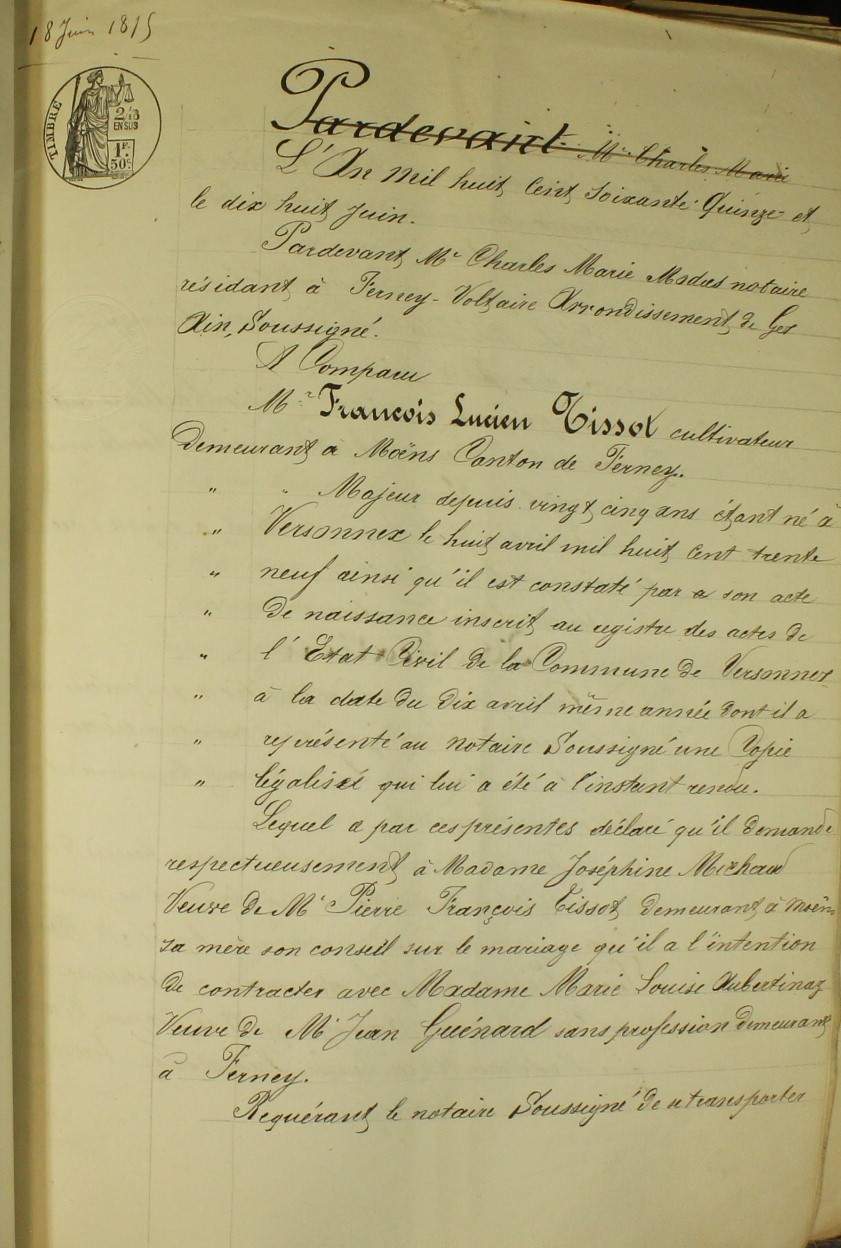 18 Juin 1875
TIMBRE
2/10
EN SUS
1F.
50c.
Pardevant Me Charles Marie
L'An mil huit cent soixante Quinze et
le dix huit Juin.
Pardevant Me Charles Marie notaire
résidant à Ferney-Voltaire Arrondissement de Gex
Ain, Soussigné.
A Comparu
Mr François Lucien Tissot cultivateur
demeurant à Moëns Canton de Ferney.
" " Majeur depuis vingt cinq ans étant né à
" Versonnex le huit avril mil huit cent trente
" neuf ainsi qu'il est constaté par a son acte
" de naissance inscrit au registre des actes de
" l'Etat Civil de la Commune de Versonnex
" à la date du dix avril même année dont il a
" représenté au notaire Soussigné une Copie
" légalisée qui lui a été à l'instant rendu.
Lequel a par ces présentes déclaré qu'il demande
respectueusement à Madame Joséphine Michaud
Veuve de Mr Pierre François Tissot demeurant à Moëns
sa mère son conseil sur le mariage qu'il a l'intention
de contracter avec Madame Marie Louise Aubertinaz
Veuve de Mr Jean Guénard sans profession demeurant
à Ferney.
Requérant le notaire Soussigné de se transporter